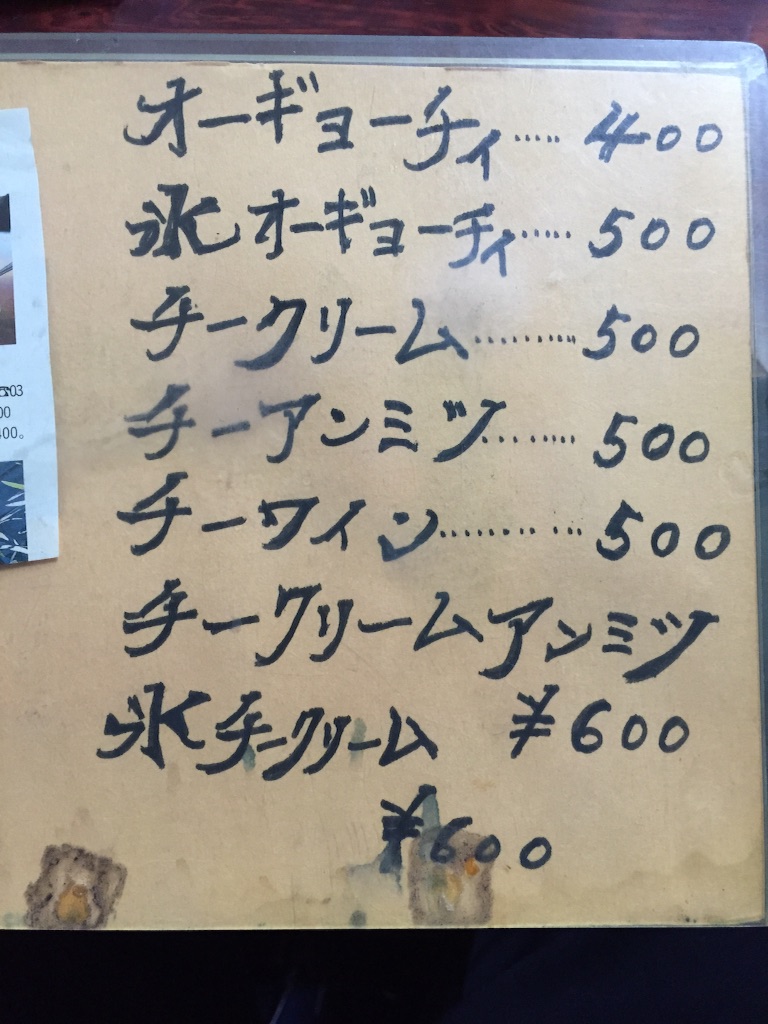 オーギョーチィ..... 400
氷 オーギョーチィ..... 500
チークリーム......... 500
チーアンミツ........ 500
チーワイン.......... 500
チークリームアンミツ
¥600
氷チークリーム
¥600
503
00
400。